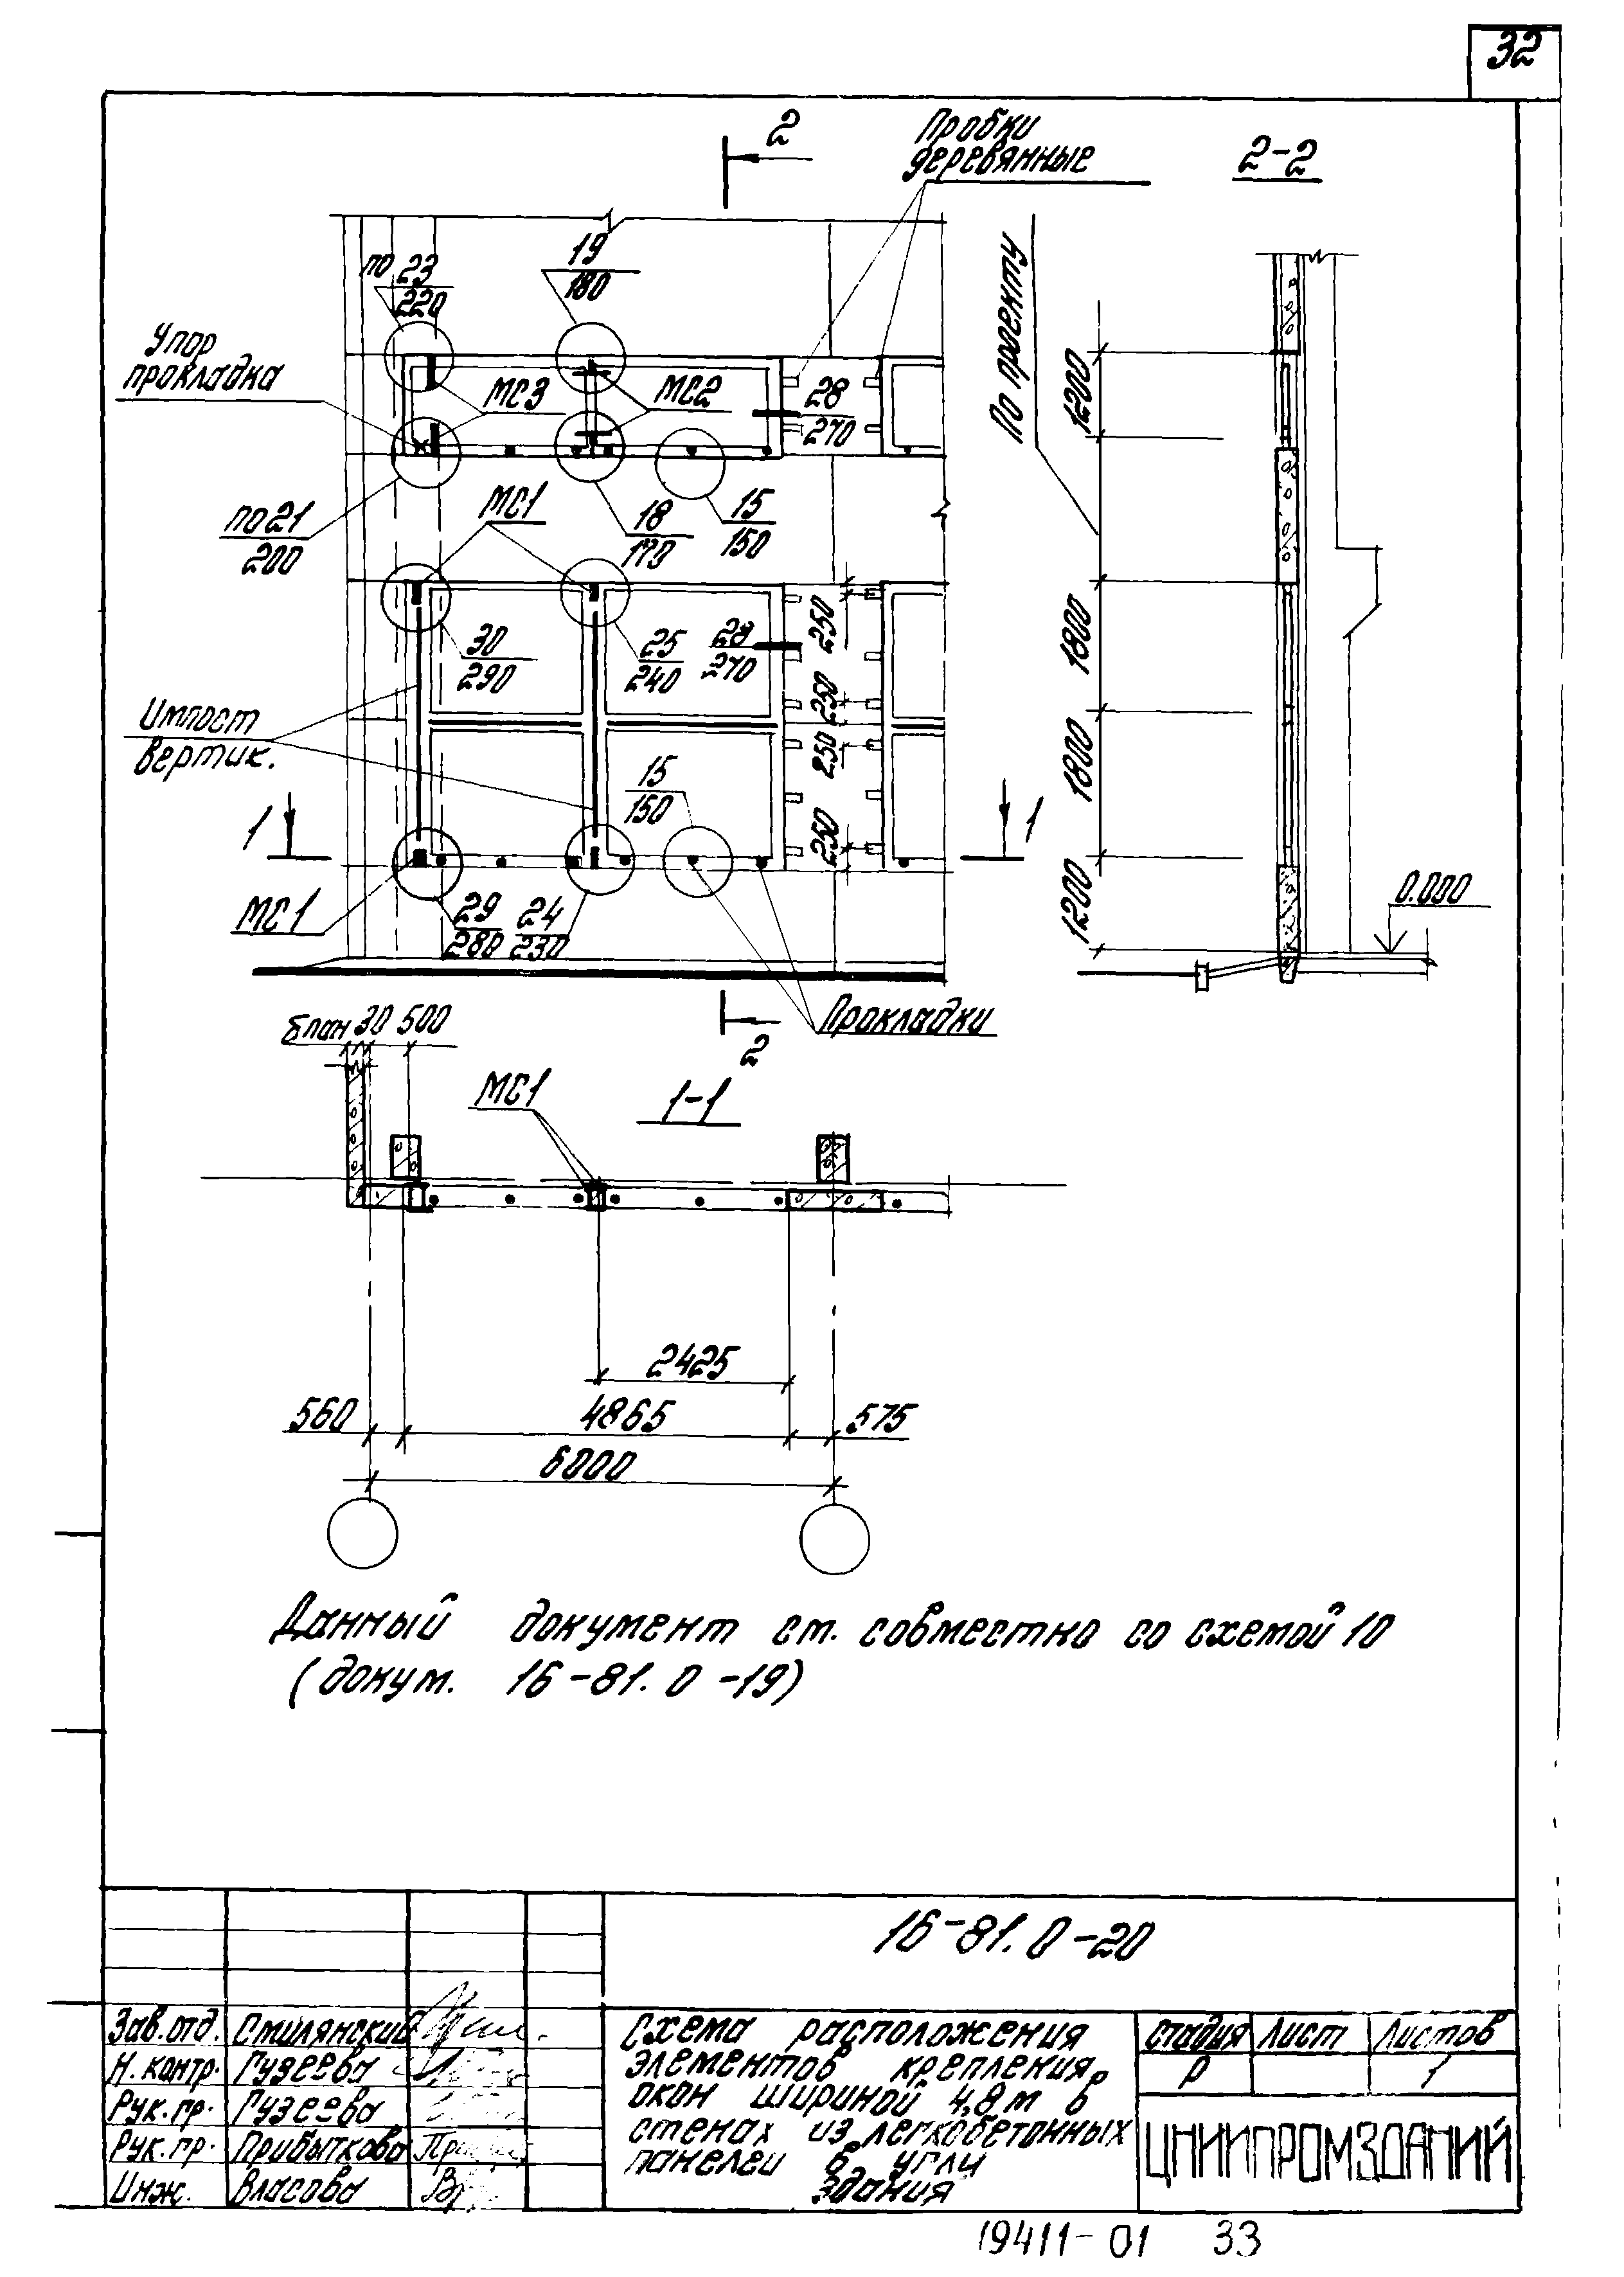 32
2
Пробки
деревянные
2-2
по 23
220
19
180
По проекту
Упор
прокладка
МС3
МС2
28
270
1200
по 21
200
МС1
18
170
15
150
30
290
25
240
28
270
250
250
250
250
1800
1800
1200
Импост
вертик.
15
150
1
1
0.000
МС1
29
280
24
230
Прокладки
2
δпан 30 500
МС1
1-1
2425
560
4865
575
6000
Данный документ см. совместно со схемой 10
(докум. 16-81.0-19)
16-81.0-20
Зав.отд. Смилянский
Н.контр. Гузеева
Рук.гр. Гузеева
Рук.гр. Прибыткова
Инж. Власова
Схема расположения
элементов крепления
окон шириной 4,8м в
стенах из легкобетонных
панелей в углу
здания
стадия Лист Листов
Р 1
ЦНИИПРОМЗДАНИЙ
19411-01 33